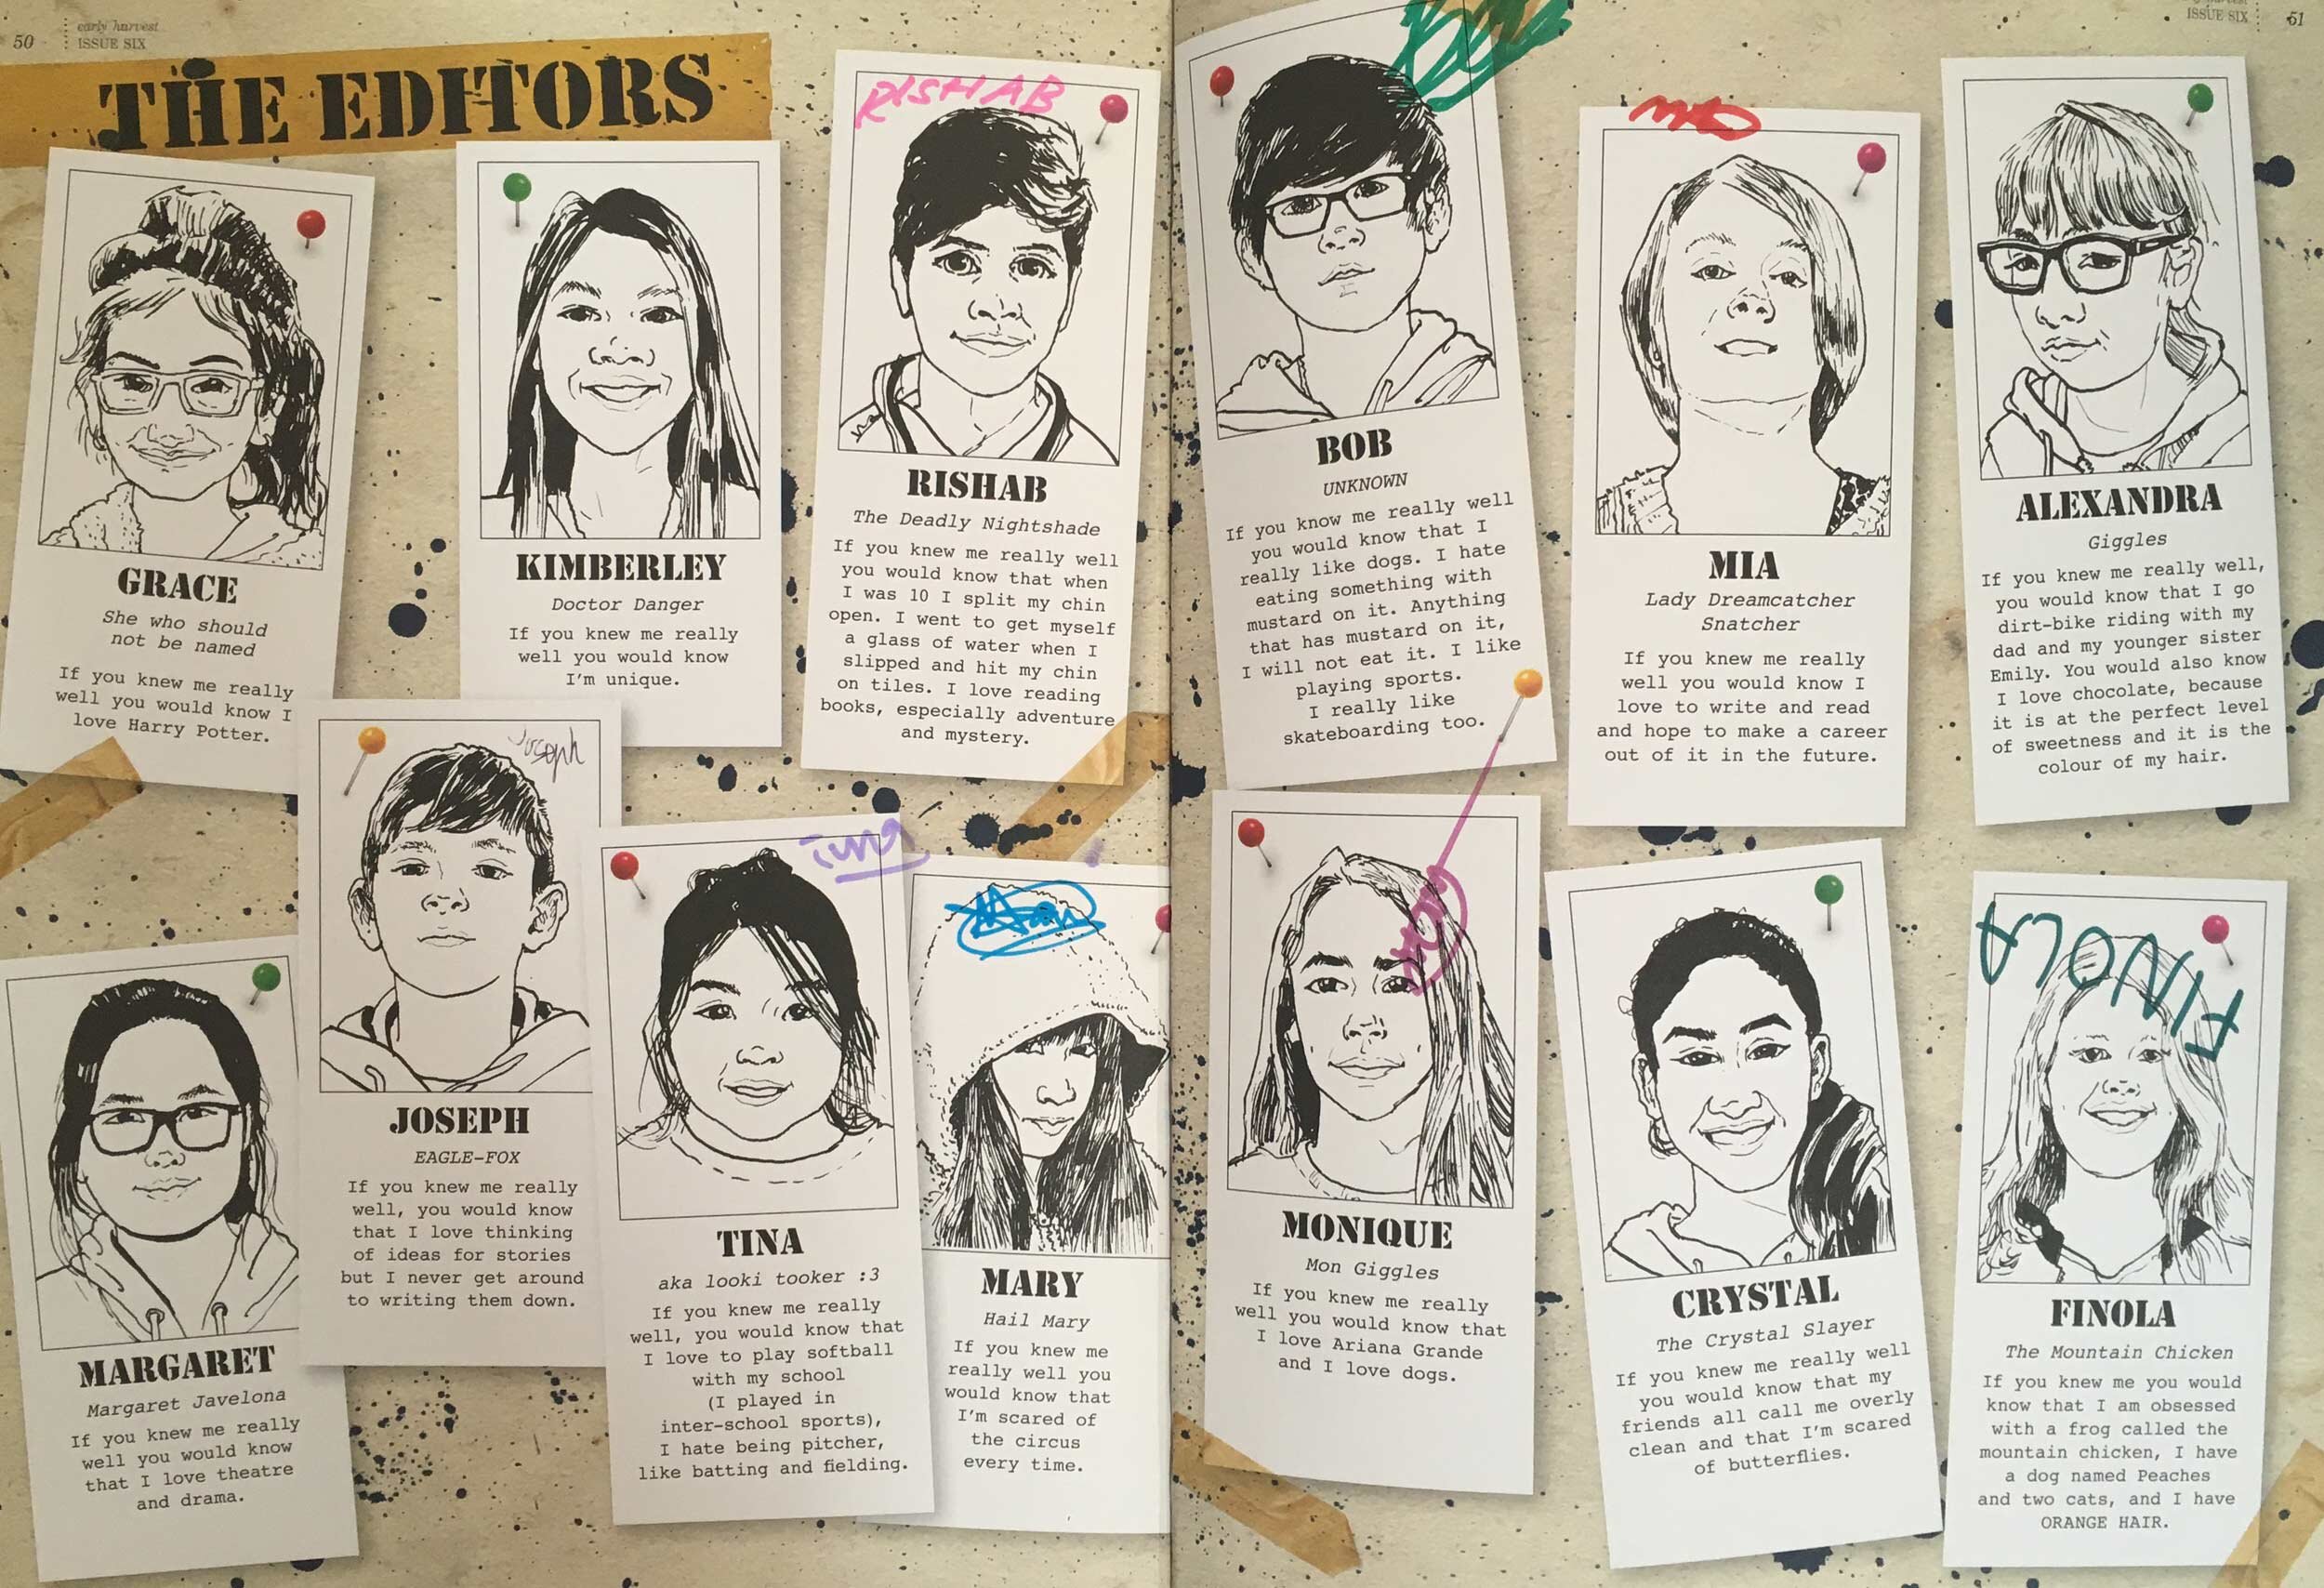 50
early harvest
ISSUE SIX
THE EDITORS
GRACE
She who should
not be named
If you knew me really
well you would know I
love Harry Potter.
KIMBERLEY
Doctor Danger
If you knew me really
well you would know
I'm unique.
RISHAB
RISHAB
The Deadly Nightshade
If you knew me really well
you would know that when
I was 10 I split my chin
open. I went to get myself
a glass of water when I
slipped and hit my chin
on tiles. I love reading
books, especially adventure
and mystery.
MARGARET
Margaret Javelona
If you knew me really
well you would know
that I love theatre
and drama.
Joseph
JOSEPH
EAGLE-FOX
If you knew me really
well, you would know
that I love thinking
of ideas for stories
but I never get around
to writing them down.
TINA
aka looki tooker :3
If you knew me really
well, you would know that
I love to play softball
with my school
(I played in
inter-school sports),
I hate being pitcher,
like batting and fielding.
MARY
Hail Mary
If you knew me
really well you
would know that
I'm scared of
the circus
every time.
ISSUE SIX
51
BOB
UNKNOWN
If you know me really well
you would know that I
really like dogs. I hate
eating something with
mustard on it. Anything
that has mustard on it,
I will not eat it. I like
playing sports.
I really like
skateboarding too.
MIA
Lady Dreamcatcher
Snatcher
If you knew me really
well you would know I
love to write and read
and hope to make a career
out of it in the future.
ALEXANDRA
Giggles
If you knew me really well,
you would know that I go
dirt-bike riding with my
dad and my younger sister
Emily. You would also know
I love chocolate, because
it is at the perfect level
of sweetness and it is the
colour of my hair.
MONIQUE
Mon Giggles
If you knew me really
well you would know that
I love Ariana Grande
and I love dogs.
CRYSTAL
The Crystal Slayer
If you knew me really well
you would know that my
friends all call me overly
clean and that I'm scared
of butterflies.
FINOLA
FINOLA
The Mountain Chicken
If you knew me you would
know that I am obsessed
with a frog called the
mountain chicken, I have
a dog named Peaches
and two cats, and I have
ORANGE HAIR.